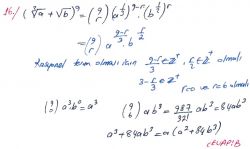 16-) (∛a + √b)⁹ = (9 r) (a^(1/3))^(9-r) · (b^(1/2))^r
= (9 r) a^((9-r)/3) · b^(r/2)
Rasyonel terim olması için (9-r)/3 ∈ Z⁺, r/2 ∈ Z⁺ olmalı
3 - r/3 ∈ Z⁺ r=0 ve r=6 olmalı
(9 0) a³b⁰ = a³ (9 6) ab³ = 987/3! ab³ = 84ab³
a³ + 84b³ = a(a² + 84b³)
CEVAP:B